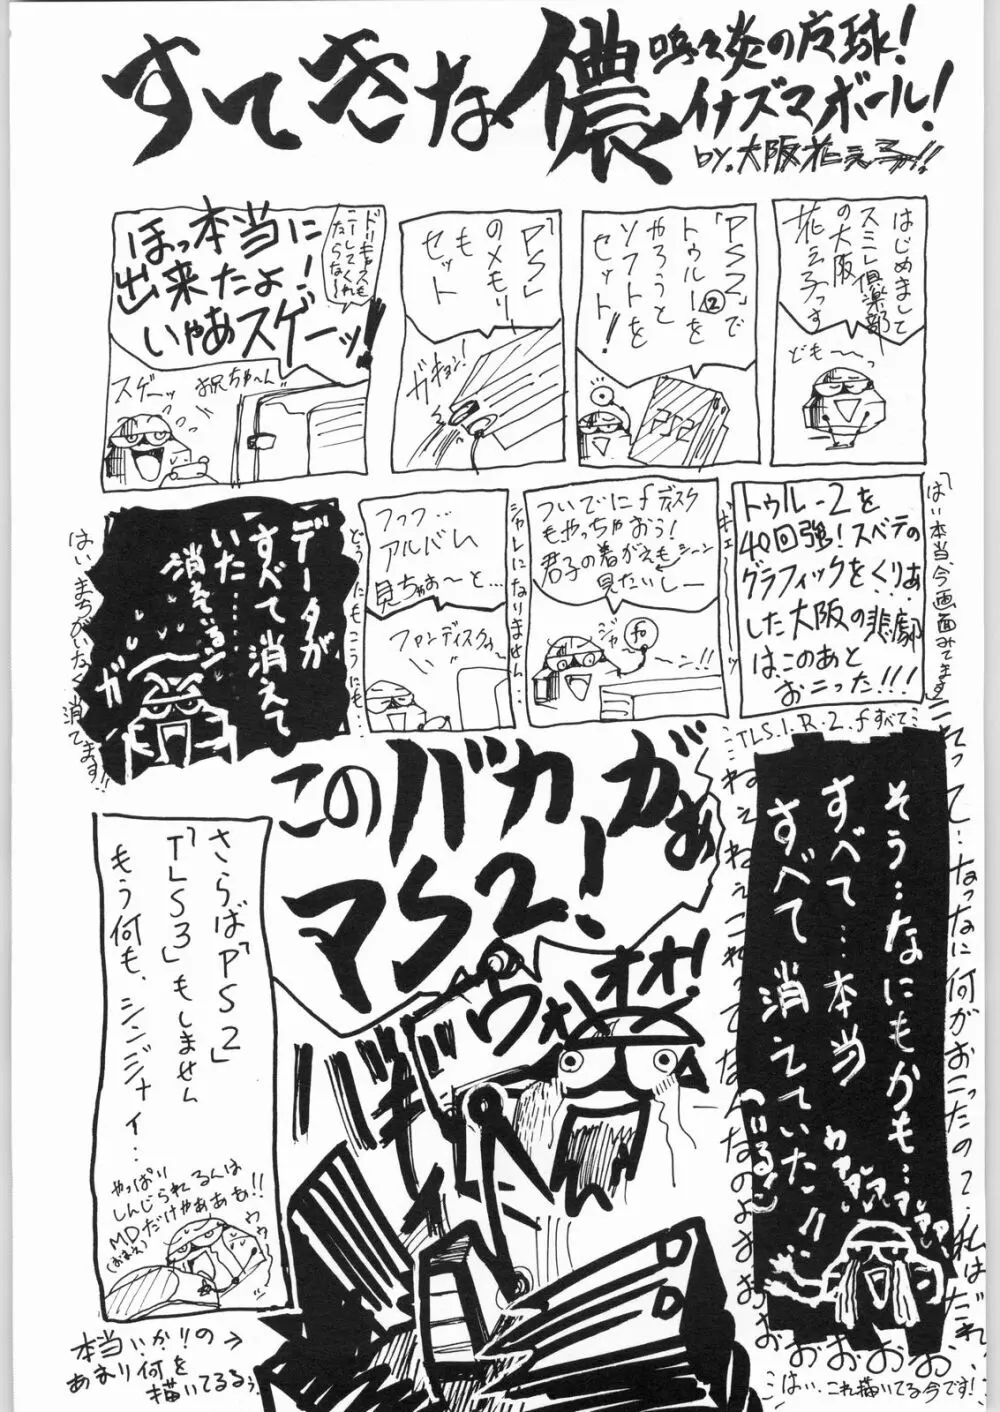 すてきな儂
嗚々炎の庭球!
イナズマボール!
by.大阪花え子っ!!
はじめまして
スミレ倶楽部
の大阪
花え子っす
ども〜っ
「PS2」で
トゥルー②を
やろうと
ソフトを
セット!
PS2
「PS」
のメモリー
も
セット
ガキョン!
ほっ本当に
出来たよ!
いやあスゲーッ!!
ドリキャスも
こーしてくれ
たらな〜
スゲーッ
お兄ちゃ〜ん
トゥル-2を
40回強!スベテの
グラフィックをくりあ
した大阪の悲劇
はこのあと
おこった!!!
「はい本当、今画面みてます」
ついでにfディスク
もやっちゃおう!
君子の着がえもシーン
見たいしー
ジャ
〜ン!!
シャレになりません…
フッフ…
アルバム
見ちゃお〜と…
ファンディスクゥ〜
どうにもこうにも…
データが
すべて消えて
いた……
消えている〜
ガ
はい、まちがいなく消えてます!!
TLS.1.R.2.fすべて…
そう‥なにもかも…
すべて…本当
すべて消えていた!!
(いるっ)
わァァァァァァ
これって…なっなに何がおこったの?私はだれ…
ねぇねぇねぇこれってなんなのよおおおおおおおお
このバカがぁ
マS2!
ヴォオオ!
バキッ
さらば「PS2」
「TLS3」もしません
もう何も、シンジナイ…
やっぱり
しんじられるんは
MDだけやああも!!
(おまえ)
ウゥ
本当いかりの→
あまり何を
描いてるるぅ
…はい‥これ描いてる今です!